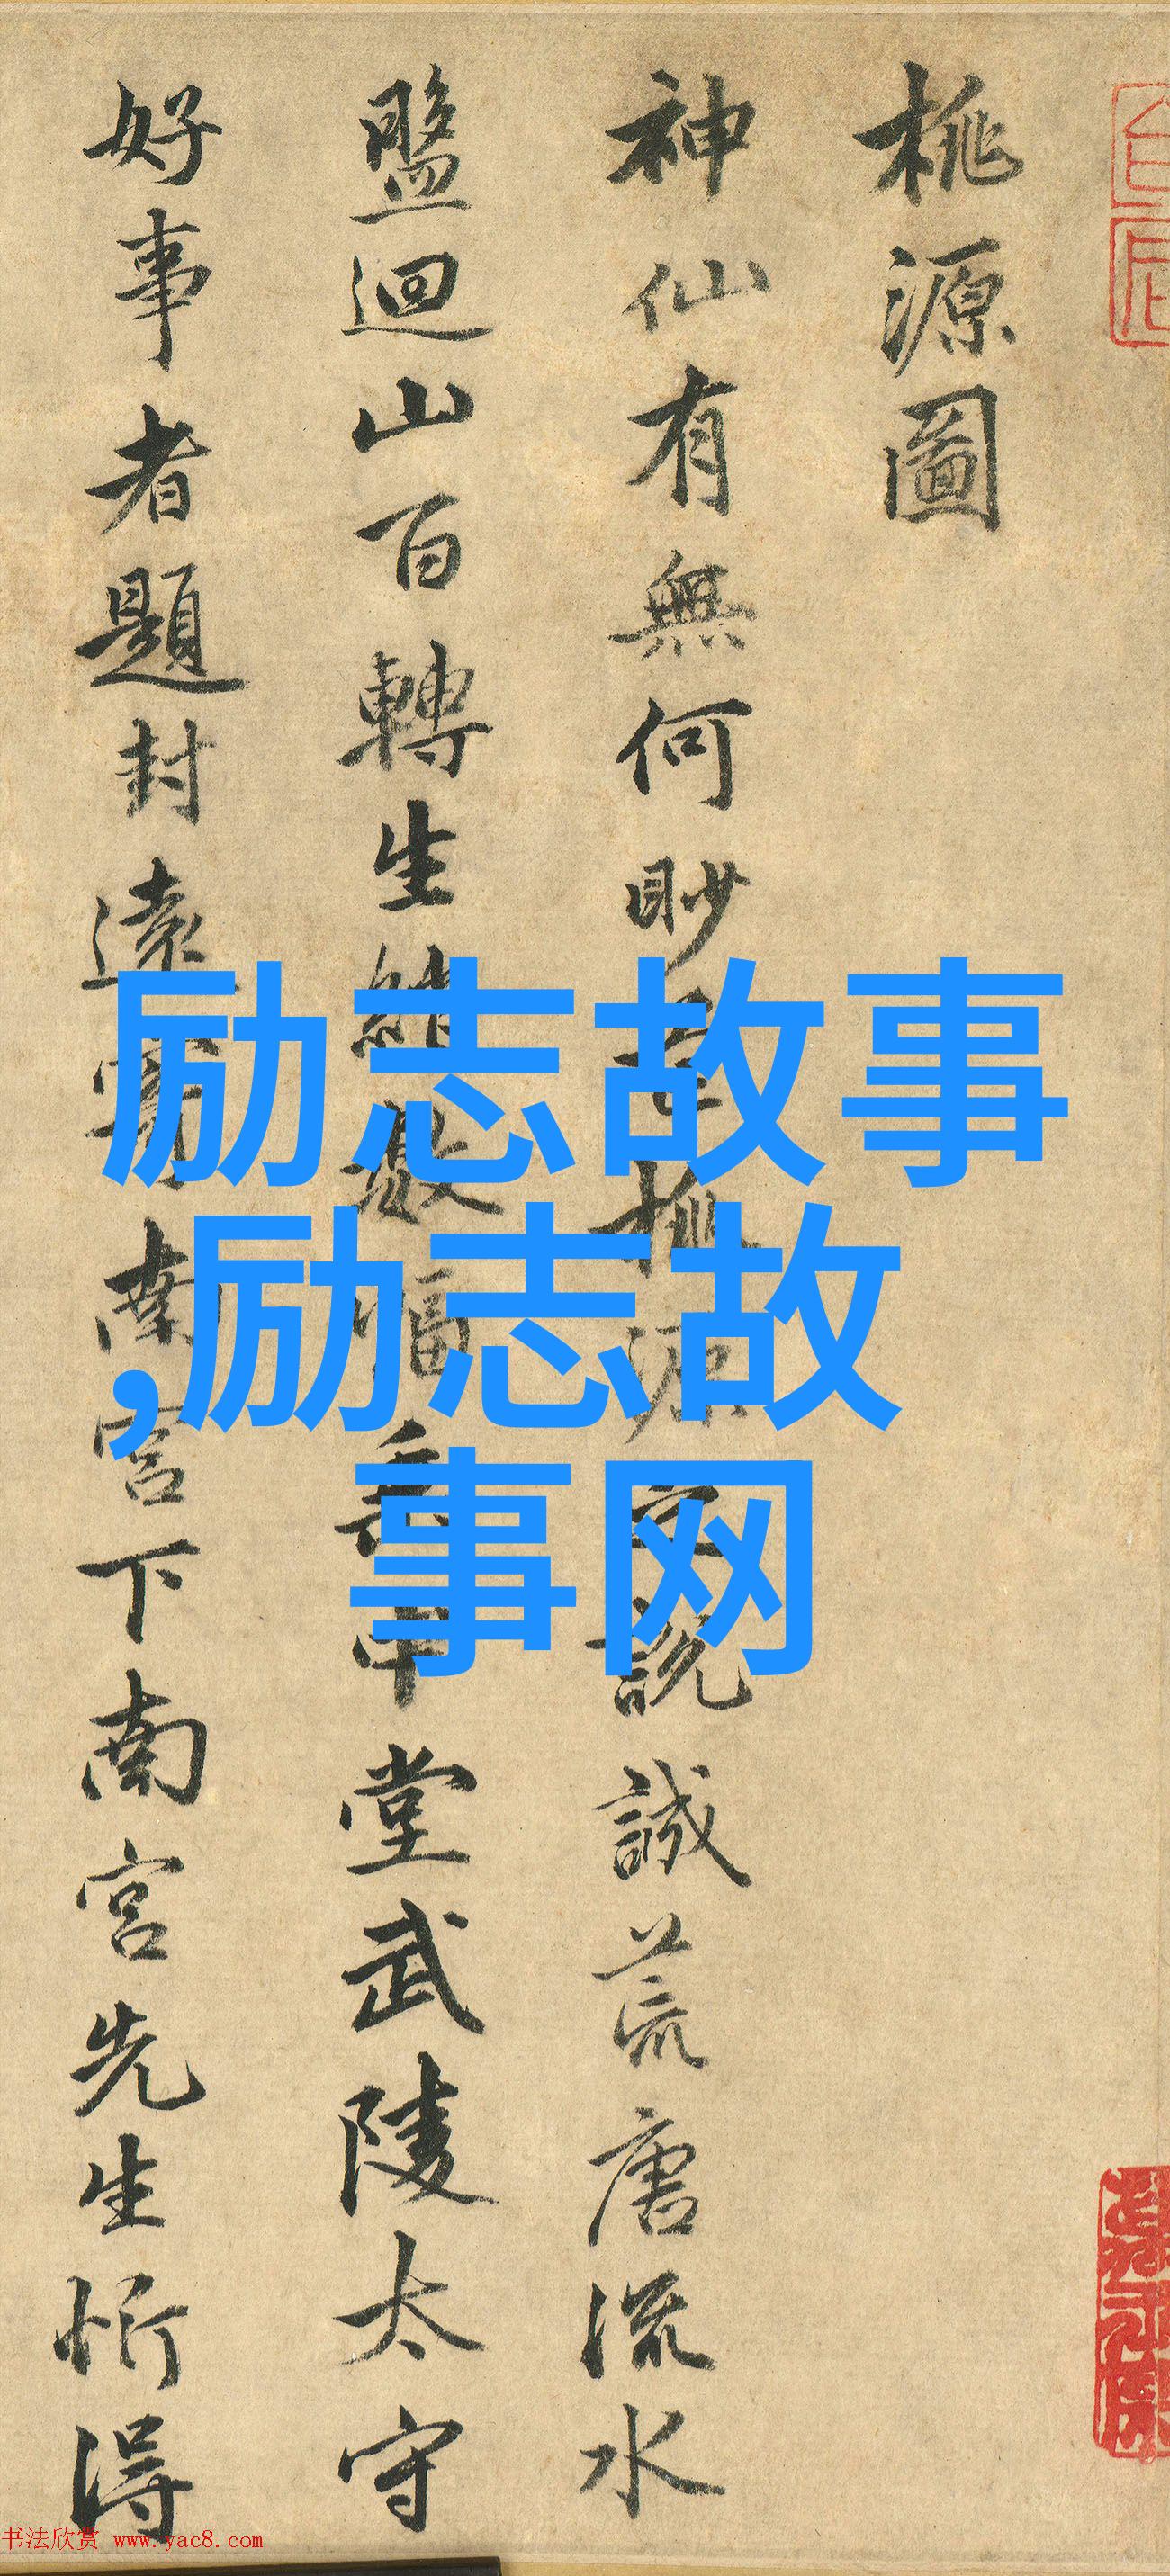 桃源圖
神仙有無何眇芒桃源之說誠荒唐流水
盤迴山百轉生綃數幅垂中堂武陵太守
好事者題封遠寄南宮下南宮先生忻得
励志故事
,励志故
事网
书法欣赏 www.yac8.com